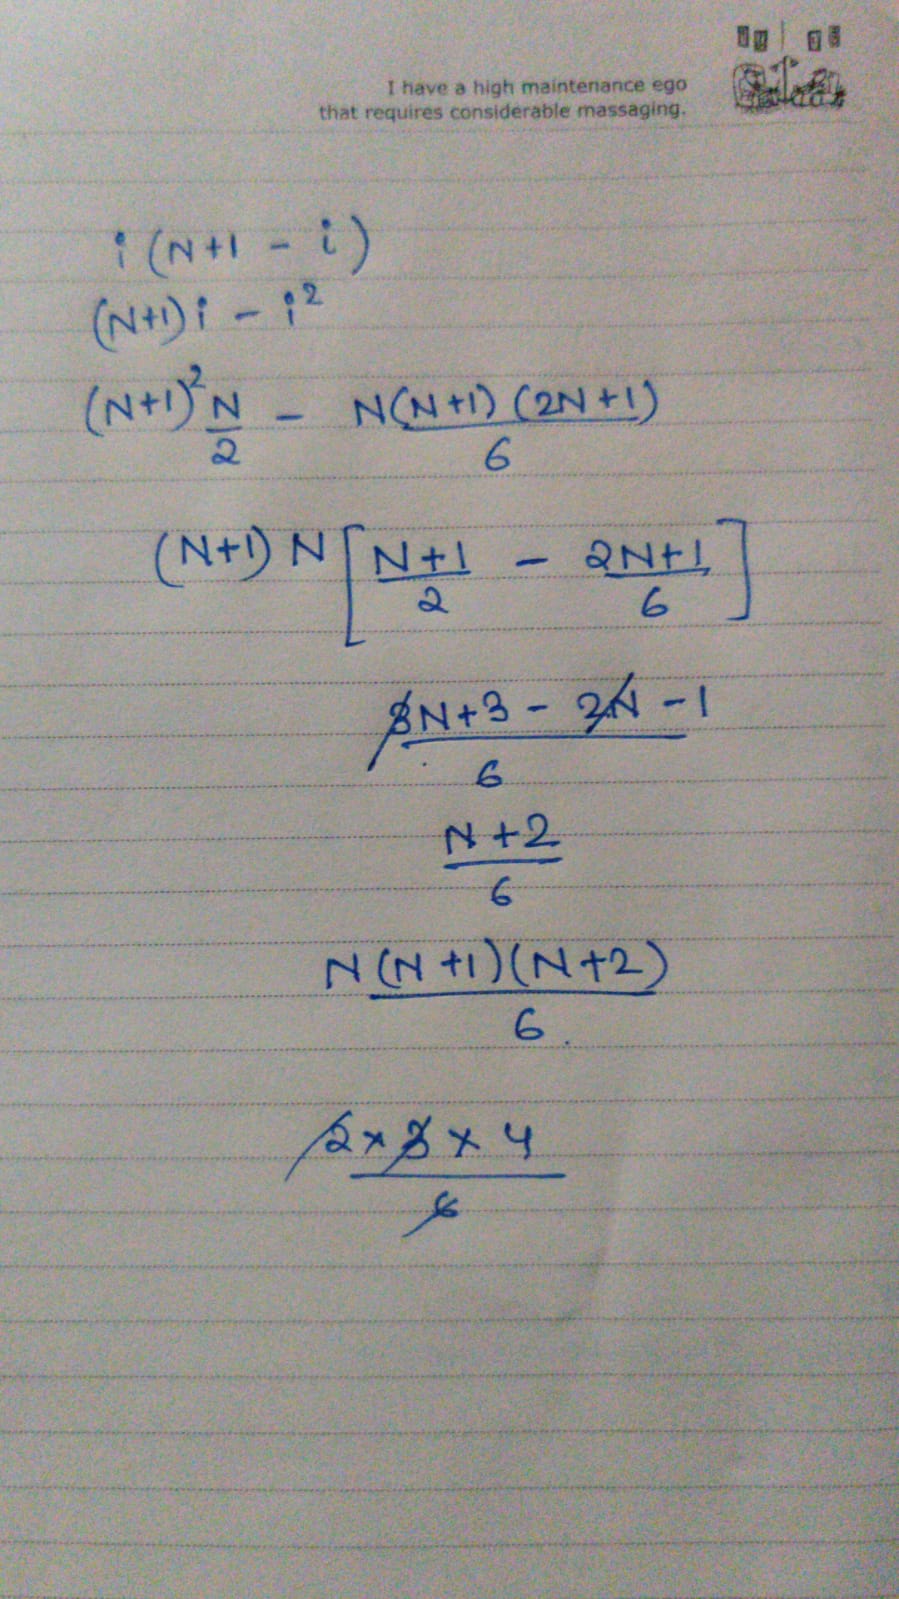 I have a high maintenance ego
that requires considerable massaging.
i (N+1 - i)
(N+1)i - i²
(N+1)² N/2 - N(N+1)(2N+1)/6
(N+1) N [ N+1/2 - 2N+1/6 ]
3N+3 - 2N - 1
6
N+2
6
N(N+1)(N+2)
6
2 x 3 x 4
6